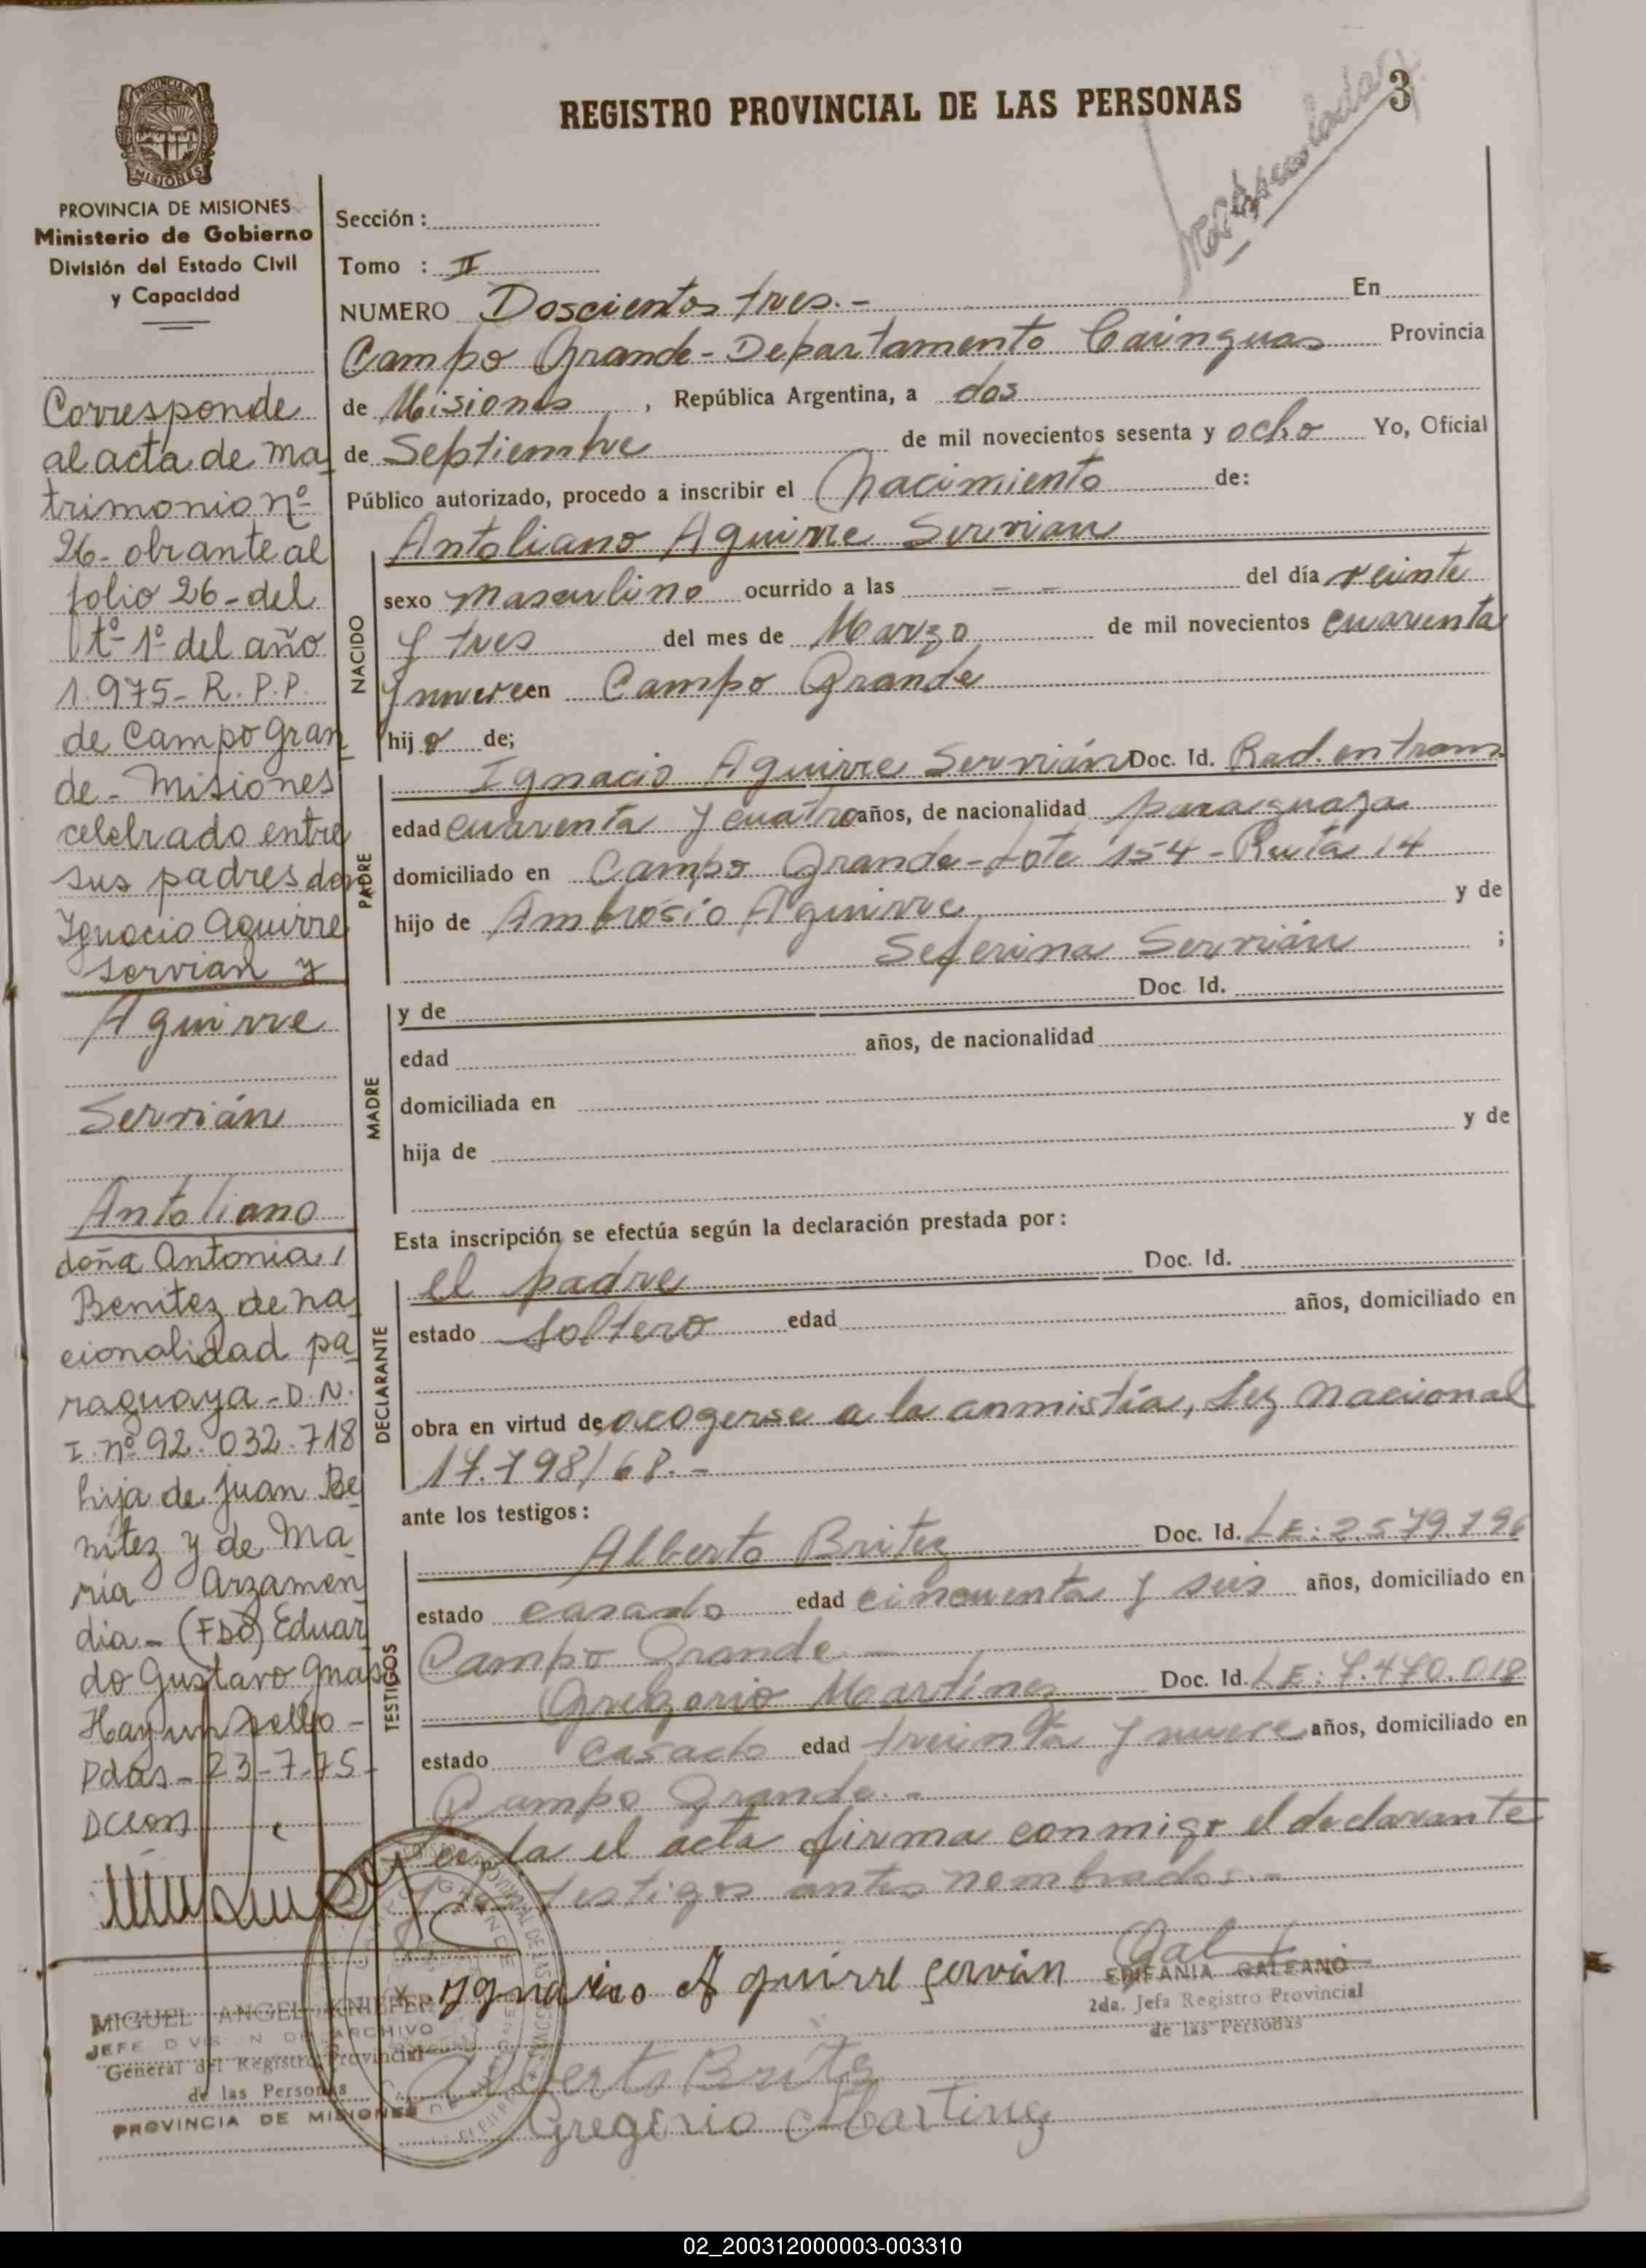 REGISTRO PROVINCIAL DE LAS PERSONAS
3
PROVINCIA DE MISIONES
Ministerio de Gobierno
División del Estado Civil
y Capacidad
Corresponde
al acta de ma
trimonio nº
26- obrante al
folio 26- del
tº 1º del año
1.975- R.P.P.
de Campo Gran
de- Misiones
celebrado entre
sus padres don
Ignacio Aguirre
Servian y
Aguirre
Servián
Antoliano
doña Antonia
Benitez de na
cionalidad pa
raguaya- D.N.
I. nº 92.032.718
hija de Juan Be
nitez y de Ma
ria Arzamen
dia- (FDO) Eduar
do Gustavo Gnas
Hay un sello-
Pdas- 23-7-75-
MIGUEL ANGEL KNIEFER
JEFE DIVISION DE ARCHIVO
General del Registro Provincial
de las Personas
PROVINCIA DE MISIONES
Sección :
Tomo : II
NUMERO Doscientos tres.- En
Campo Grande- Departamento Cainguas Provincia
de Misiones , República Argentina, a dos
de Septiembre de mil novecientos sesenta y ocho Yo, Oficial
Público autorizado, procedo a inscribir el Nacimiento de:
NACIDO
Antoliano Aguirre Servian
sexo masculino ocurrido a las - - del día veinte
y tres del mes de Marzo de mil novecientos cuarenta
y nueve en Campo Grande
hijo de;
PADRE
Ignacio Aguirre Servián Doc. Id. Rad. en tram.
edad cuarenta y cuatro años, de nacionalidad paraguaya
domiciliado en Campo Grande- Lote 154- Ruta 14
hijo de Ambrosio Aguirre y de
Seferina Servián ;
MADRE
y de Doc. Id.
edad años, de nacionalidad
domiciliada en
hija de y de
Esta inscripción se efectúa según la declaración prestada por :
DECLARANTE
el padre Doc. Id.
estado soltero edad años, domiciliado en
obra en virtud de acogerse a la anmistía, Ley nacional
17.798/68.-
ante los testigos :
TESTIGOS
Alberto Britez Doc. Id. LE: 2.579.796
estado casado edad cincuenta y seis años, domiciliado en
Campo Grande-
Gregorio Martínez Doc. Id. LE: 7.470.018
estado casado edad treinta y nueve años, domiciliado en
Campo Grande.-
el acta firma conmigo el declarante
testigos antes nombrados.-
Ygnacio Aguirre Servian
EPIFANIA GALEANO
2da. Jefa Registro Provincial
de las Personas
Alberto Britez
Gregorio Martinez
02_200312000003-003310